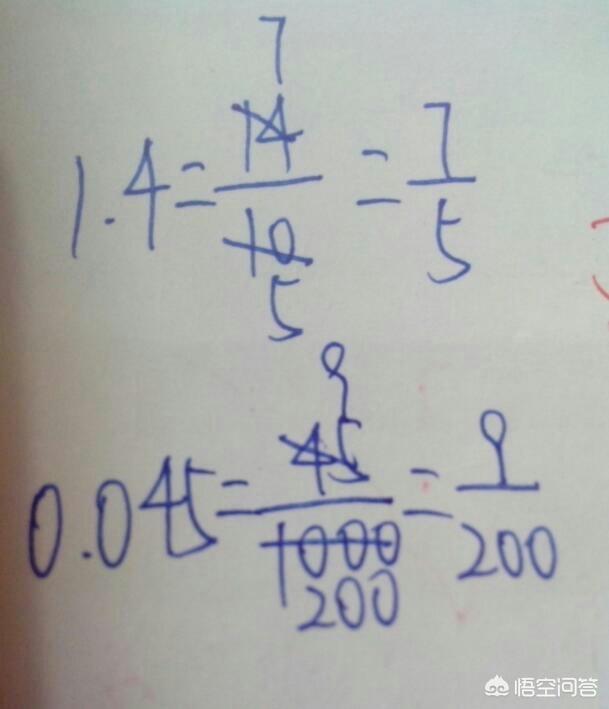 7
1.4=14/10=7/5
5
9
0.045=45/1000=9/200
200
悟空问答